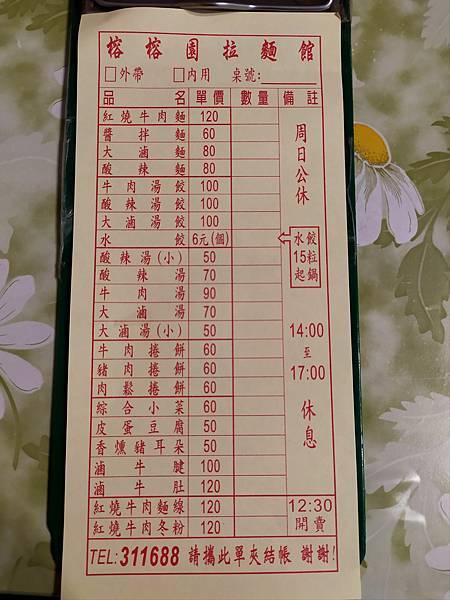 榕榕園拉麵館
□外帶 □內用 桌號:
品名 單價 數量 備註
紅燒牛肉麵 120
醬拌麵 60
大滷麵 80
酸辣麵 80
牛肉湯餃 100
酸辣湯餃 100
大滷湯餃 100
水餃 6元(個)
酸辣湯(小) 50
酸辣湯 70
牛肉湯 90
大滷湯 70
大滷湯(小) 50
牛肉捲餅 60
豬肉捲餅 60
肉鬆捲餅 60
綜合小菜 60
皮蛋豆腐 50
香燻豬耳朵 50
滷牛腱 100
滷牛肚 120
紅燒牛肉麵線 120
紅燒牛肉冬粉 120
周日公休
水餃
15粒
起鍋
14:00
至
17:00
休息
12:30
開賣
TEL:311688 請攜此單夾結帳 謝謝!